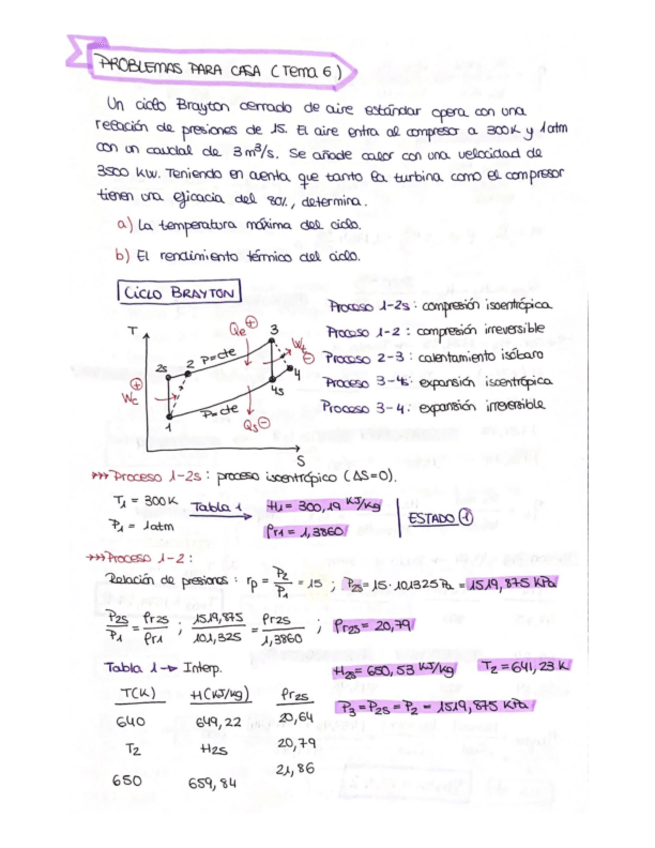 PROBLEMAS PARA CASA (Tema 6)
Un ciclo Brayton cerrado de aire estándar opera con una
relación de presiones de 15. El aire entra al compresor a 300K y 1atm
con un caudal de 3 m³/s. Se añade calor con una velocidad de
3500 kW. Teniendo en cuenta que tanto la turbina como el compresor
tienen una eficacia del 80%, determina.
a) La temperatura máxima del ciclo.
b) El rendimiento térmico del ciclo.
CICLO BRAYTON
T
2s 2 P=cte Qe ⊕ 3 Wt ⊖ 4 4s
⊕ Wc 1 P=cte Qs ⊖
S
Proceso 1-2s: compresión isoentrópica
Proceso 1-2: compresión irreversible
Proceso 2-3: calentamiento isóbaro
Proceso 3-4s: expansión isoentrópica
Proceso 3-4: expansión irreversible
>>> Proceso 1-2s: proceso isoentrópico (ΔS=0).
T₁ = 300K Tabla 1 → H₁ = 300,19 KJ/Kg ESTADO ①
P₁ = 1atm Pr₁ = 1,3860
>>> Proceso 1-2:
Relación de presiones: rp = P₂/P₁ = 15 ; P₂s = 15·101325 Pa = 1519,875 KPa
P₂s/P₁ = Pr₂s/Pr₁ ; 1519,875/101,325 = Pr₂s/1,3860 ; Pr₂s = 20,79
Tabla 1 → Interp. H₂s = 650,53 KJ/Kg T₂ = 641,23 K
T(K) H(KJ/Kg) Pr₂s P₃ = P₂s = P₂ = 1519,875 KPa
640 649,22 20,64
T₂ H₂s 20,79
650 659,84 21,86